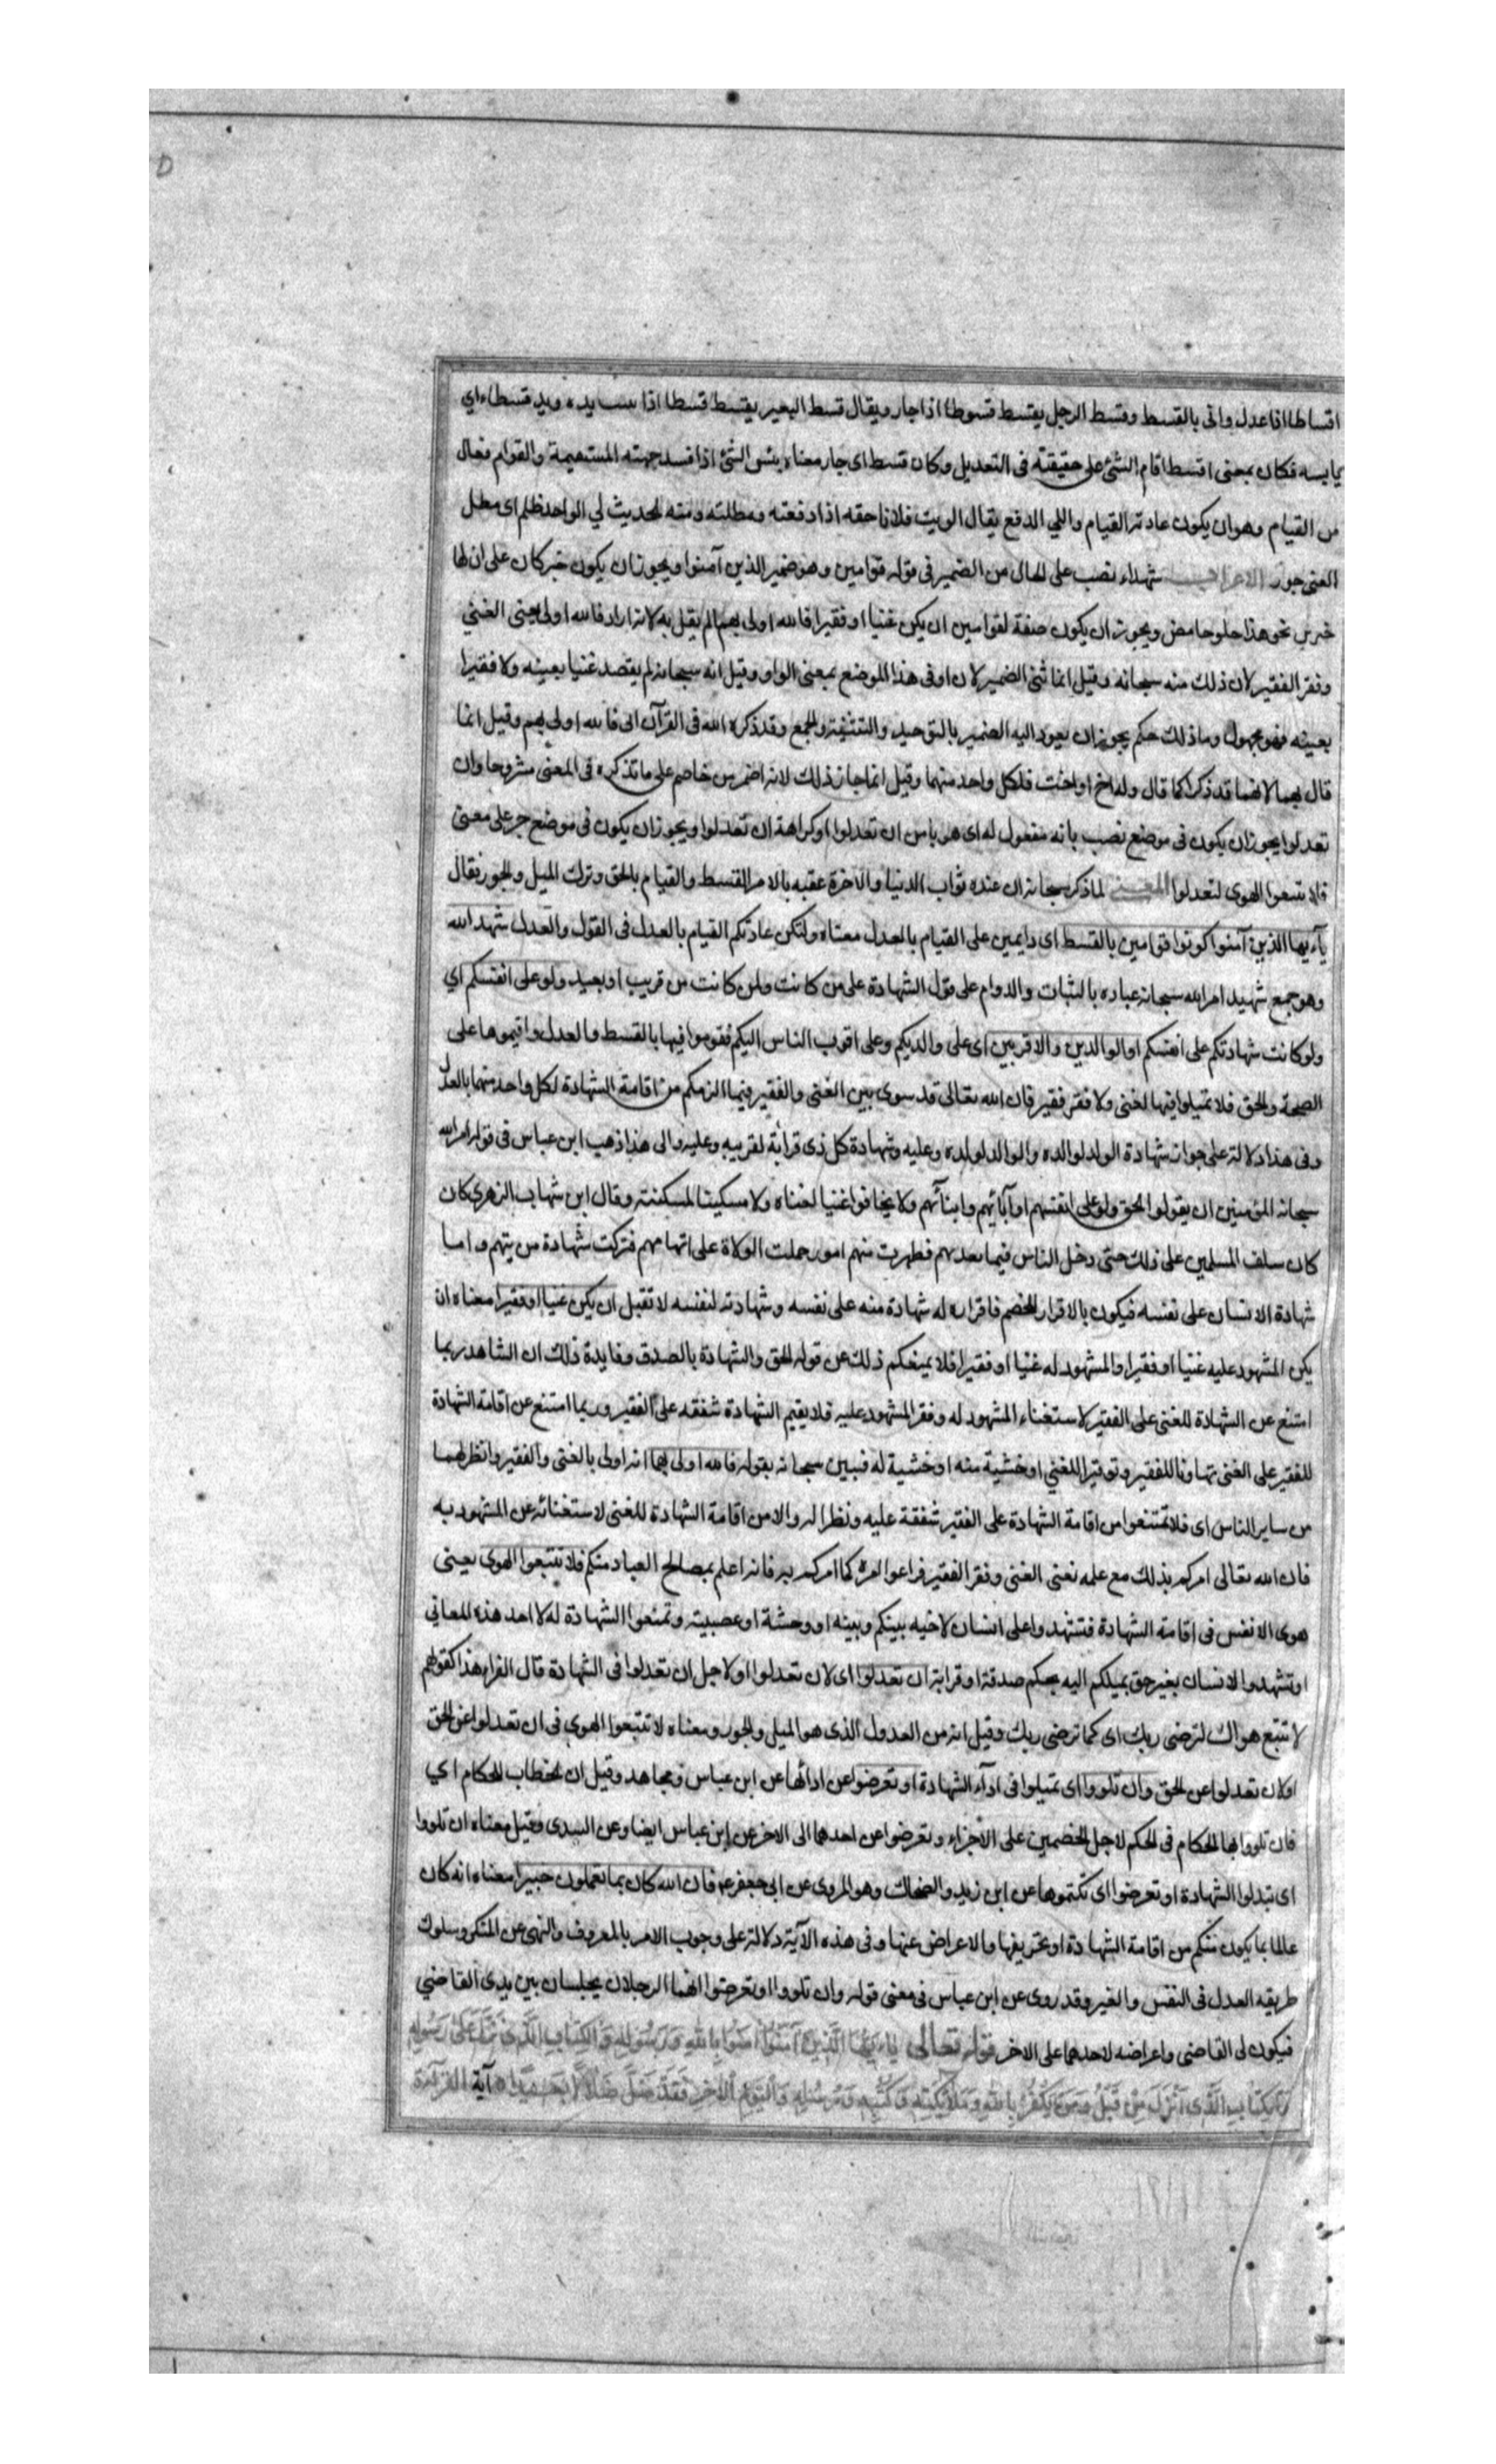 اقساطا اذا عدل واتى بالقسط وقسط الرجل يقسط قسوطا اذا جار ويقال قسط البعير يقسط قسطا اذا يبست يده ويد قسطاء اي
يابسه فكان بمعنى اقسط اقام الشئ على حقيقته فى التعديل وكان قسط اى جار معناه يبس الشئ اذا فسد جهته المستقيمة والقوام فعال
من القيام وهو ان يكون عادته القيام واللي الدفع يقال لويت فلانا حقه اذا دفعته ومطلته ومنه الحديث لي الواجد ظلم اى مطل
الغنى جور الاعراب شهداء نصب على الحال من الضمير فى قوله قوامين وهو ضمير الذين آمنوا ويجوز ان يكون خبر كان على ان لها
خبرين نحو هذا حلو حامض ويجوز ان يكون صفة لقوامين ان يكن غنيا او فقيرا فالله اولى بهما لم يقل به لانه اراد فالله اولى بغنى الغني
وفقر الفقير لان ذلك منه سبحانه وقيل انما ثنى الضمير لان او فى هذا الموضع بمعنى الواو وقيل انه سبحانه لم يقصد غنيا بعينه ولا فقيرا
بعينه فهو مجهول وما ذلك حكم يجوز ان يعود اليه الضمير بالتوحيد والتثنية والجمع وقد ذكره الله فى القرآن ابى فالله اولى بهم وقيل انما
قال بهما لانهما قد ذكرا كما قال وله اخ او اخت فلكل واحد منهما وقيل انما جاز ذلك لانه اضمر من خاصم على ما نذكره فى المعنى مشروحا وان
تعدلوا يجوز ان يكون فى موضع نصب بانه مفعول له اى هربا من ان تعدلوا او كراهة ان تعدلوا ويجوز ان يكون فى موضع جر على معنى
فلا تتبعوا الهوى لتعدلوا المعنى لما ذكر سبحانه ان عنده ثواب الدنيا والاخرة عقبه بالامر بالقسط والقيام بالحق وترك الميل والجور فقال
يآءيها الذين آمنوا كونوا قوامين بالقسط اى دايمين على القيام بالعدل معناه ولتكن عادتكم القيام بالعدل فى القول والعدل شهد الله
وهو جمع شهيد امر الله سبحانه عباده بالثبات والدوام على قول الشهادة على من كانت ولمن كانت من قريب او بعيد ولو على انفسكم اي
ولو كانت شهادتكم على انفسكم او الوالدين والاقربين اى على والديكم وعلى اقرب الناس اليكم فقوموا فيها بالقسط والعدل واقيموها على
الصحة والحق فلا تميلوا فيها لغنى ولا فقر فقير فان الله تعالى قد سوى بين الغنى والفقير فيما الزمكم من اقامة الشهادة لكل واحد منهما بالعدل
وفى هذا دلالة على جواز شهادة الولد لوالده والوالد لولده وعليه وشهادة كل ذى قرابة لقريبه وعليه والى هذا ذهب ابن عباس فى قوله امر الله
سبحانه المؤمنين ان يقولوا الحق ولو على انفسهم او آبائهم وابنائهم ولا يخافوا غنيا لغناه ولا مسكينا لمسكنته وقال ابن شهاب الزهرى كان
كان سلف المسلمين على ذلك حتى دخل الناس فيما بعدهم فظهرت منهم امور حملت الولاة على اتهامهم فتركت شهادة من يتهم واما
شهادة الانسان على نفسه فيكون بالاقرار للخصم فاقراره له شهادة منه على نفسه وشهادته لنفسه لا تقبل ان يكن غنيا او فقيرا معناه ان
يكن المشهود عليه غنيا او فقيرا والمشهود له غنيا او فقيرا فلا يمنعكم ذلك عن قوله الحق والشهادة بالصدق وفايدة ذلك ان الشاهد ربما
امتنع عن الشهادة للغنى على الفقير لاستغناء المشهود له وفقر المشهود عليه فلا يقيم الشهادة شفقه على الفقير وربما امتنع عن اقامة الشهادة
للفقير على الغنى تهاونا للفقير وتوقيرا للغني او خشية منه او خشية له فبين سبحانه بقوله فالله اولى بهما انه اولى بالغنى والفقير وانظر لهما
من ساير الناس اى فلا تمتنعوا من اقامة الشهادة على الفقير شفقة عليه ونظرا له والامن اقامة الشهادة للغنى لاستغنائه عن المشهود به
فان الله تعالى امركم بذلك مع علمه بغنى الغنى وفقر الفقير فراعوا امره كما امركم به فانه اعلم بمصالح العباد منكم فلا تتبعوا الهوى يعنى
هوى الانفس فى اقامة الشهادة فتشهدوا على انسان لاحنه بينكم وبينه او وحشة او عصبية وتمنعوا الشهادة له لاحد هذه المعاني
او تشهدوا لانسان بغير حق بميلكم اليه بحكم صدقة او قرابة ان تعدلوا اى لان تعدلوا او لاجل ان تعدلوا فى الشهادة قال الفراء هذا كقولهم
لا تتبع هواك لترضى ربك اى كما ترضى ربك وقيل انه من العدول الذى هو الميل والجور ومعناه لا تتبعوا الهوى فى ان تعدلوا عن الحق
او لان تعدلوا عن الحق وان تلووا اى تميلوا فى ادآء الشهادة او تعرضوا عن ادائها عن ابن عباس ومجاهد وقيل ان الخطاب للحكام اي
فان تلووا ايها الحكام فى الحكم لاجل الخصمين على الاجزاء وتعرضوا عن احدهما الى الاخر عن ابن عباس ايضا وعن السدى وقيل معناه ان تلووا
اى تبدلوا الشهادة او تعرضوا اى تكتموها عن ابن زيد والضحاك وهو المروى عن ابى جعفر ع فان الله كان بما تعملون خبيرا معناه انه كان
عالما بما يكون منكم من اقامة الشهادة او تحريفها والاعراض عنها وفى هذه الآية دلالة على وجوب الامر بالمعروف والنهى عن المنكر وسلوك
طريقه العدل فى النفس والغير وقد روى عن ابن عباس فى معنى قوله وان تلووا او تعرضوا انهما الرجلان يجلسان بين يدى القاضي
فيكون لى القاضى واعراضه لاحدهما على الاخر قوله تعالى يآءيها الذين آمنوا امنوا بالله ورسوله والكتاب الذى نزل على رسوله
والكتاب الذى انزل من قبل ومن يكفر بالله وملائكته وكتبه ورسله واليوم الاخر فقد ضل ضلالا بعيدا آية القرآءة